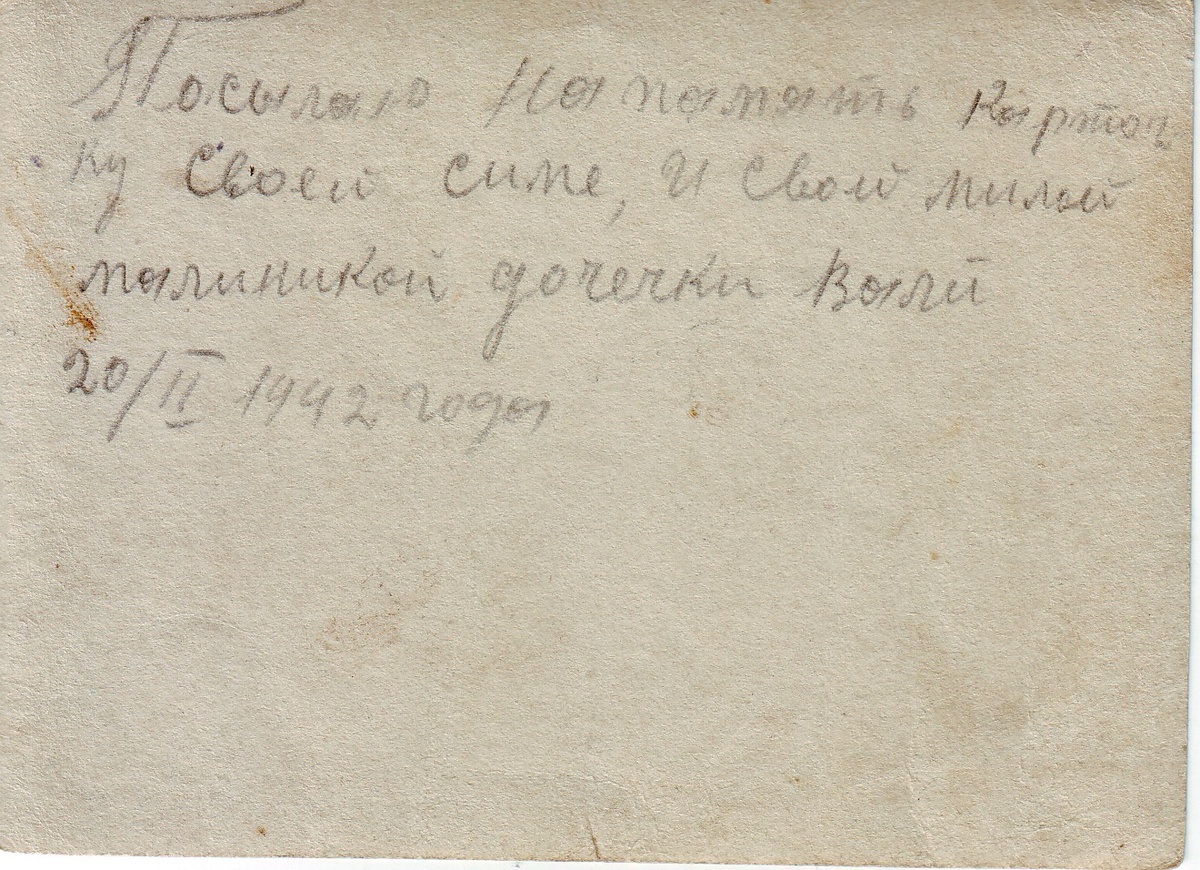 Посылаю На память карточ
ку Своей симе, и Свой милой
малиникой дочечки Вали
20/II 1942 года